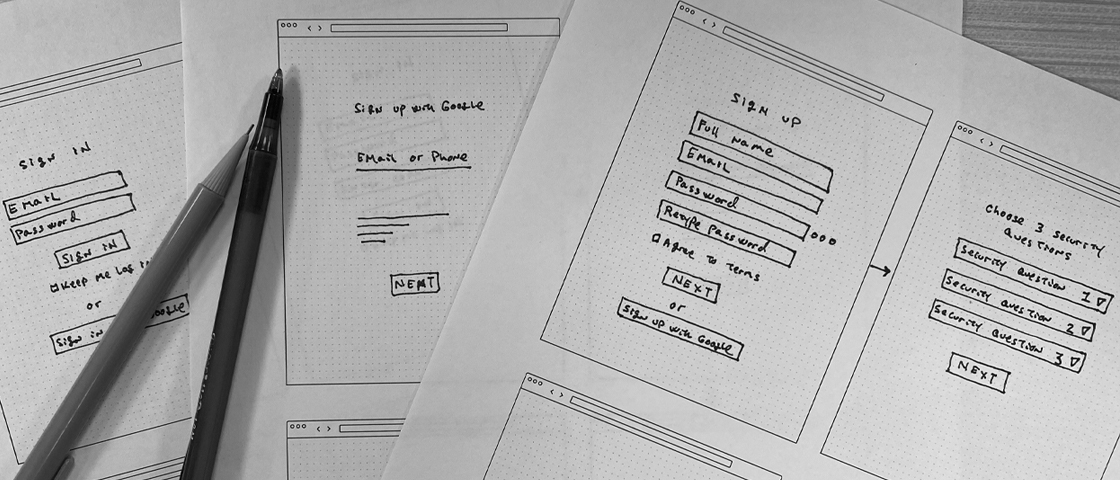 Sign in
Email
Password
Sign in
Keep me log in
or
Sign in Google
Sign up with Google
Email or Phone
NEXT
Sign up
Full Name
Email
Password
Retype Password
Agree to Terms
NEXT
or
Sign up with Google
Choose 3 Security
Questions
Security Question 1
Security Question 2
Security Question 3
NEXT